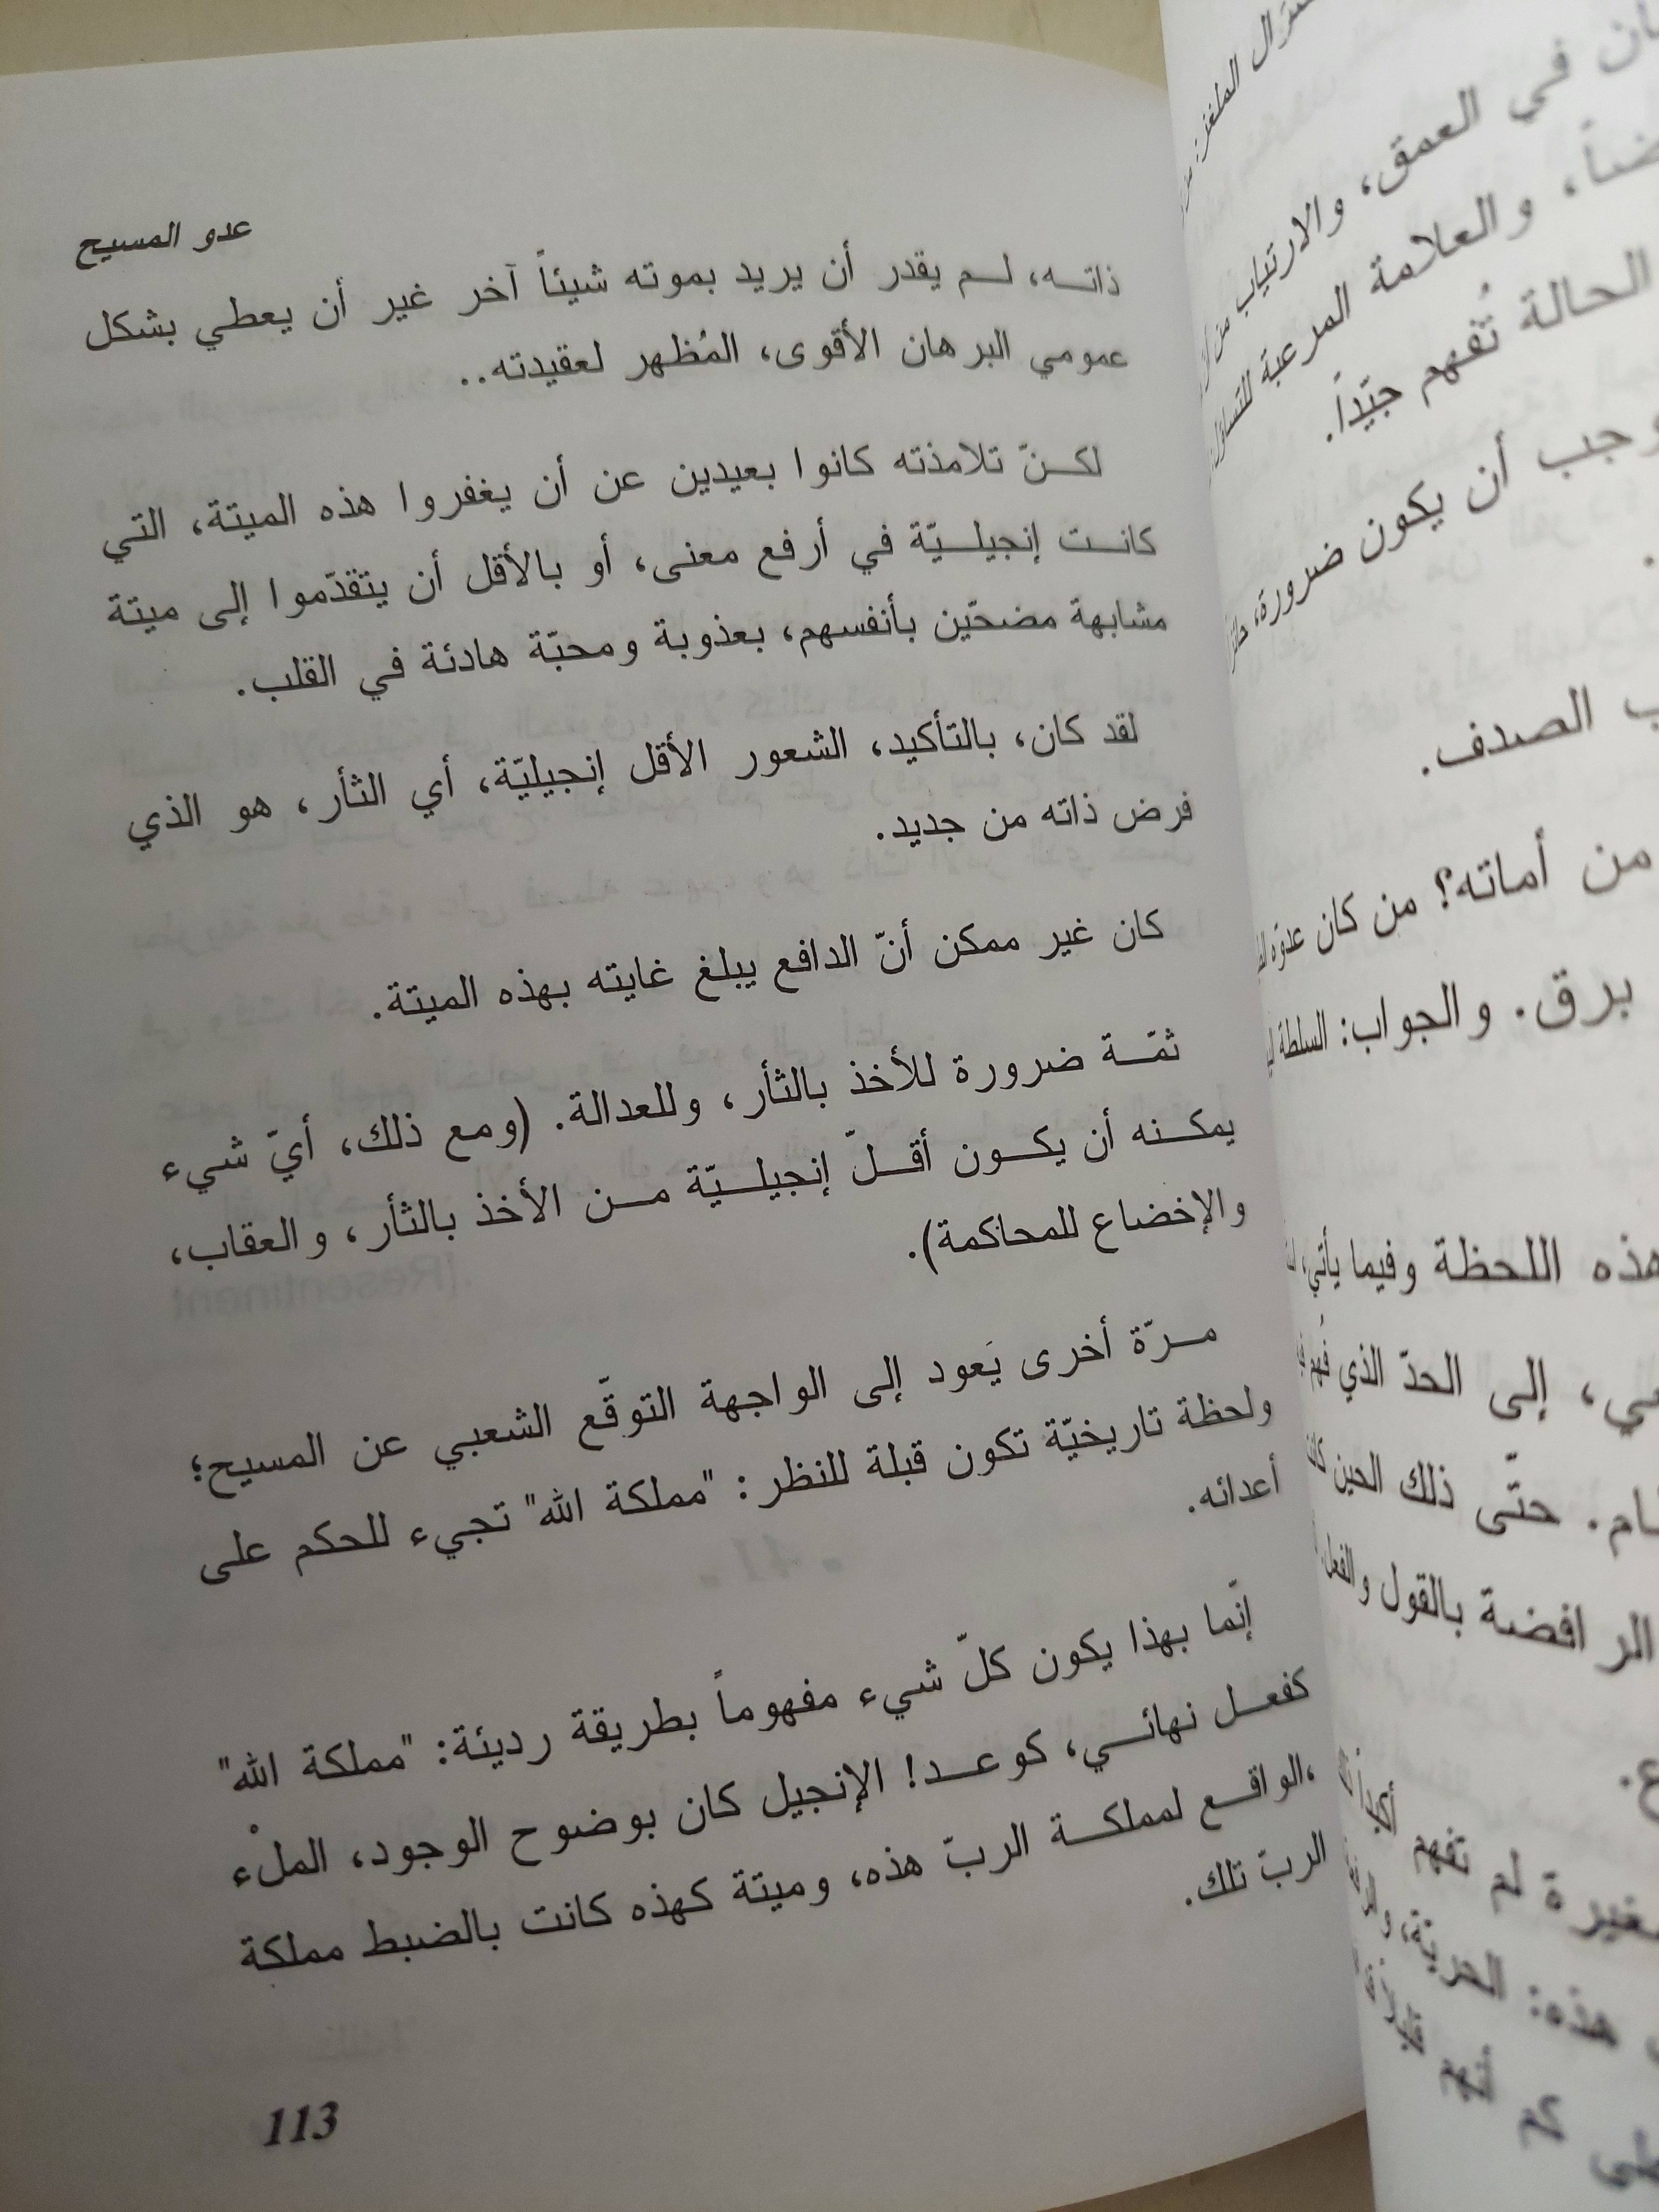 عدو المسيح
ذاتـه، لـم يقدر أن يريد بموته شيئاً آخر غير أن يعطي بشكل
عمومي البرهان الأقوى، المُظهر لعقيدته..
لكـنّ تلامذته كانوا بعيدين عن أن يغفروا هذه الميتة، التي
كانـت إنجيلـيّة في أرفع معنى، أو بالأقل أن يتقدّموا إلى ميتة
مشابهة مضحّين بأنفسهم، بعذوبة ومحبّة هادئة في القلب.
لقد كان، بالتأكيد، الشعور الأقل إنجيليّة، أي الثأر، هو الذي
فرض ذاته من جديد.
كان غير ممكن أنّ الدافع يبلغ غايته بهذه الميتة.
ثمّـة ضرورة للأخذ بالثأر، وللعدالة. (ومع ذلك، أيّ شيء
يمكـنه أن يكـون أقـلّ إنجيلـيّة مـن الأخذ بالثأر، والعقاب،
والإخضاع للمحاكمة).
مـرّة أخرى يَعود إلى الواجهة التوقّع الشعبي عن المسيح؛
ولحظة تاريخيّة تكون قبلة للنظر: "مملكة الله" تجيء للحكم على
أعدائه.
إنّما بهذا يكون كلّ شيء مفهوماً بطريقة رديئة: "مملكة الله"
كفعـل نهائـي، كوعـد! الإنجيل كان بوضوح الوجود، الملْء
،الواقـع لمملكـة الربّ هذه، وميتة كهذه كانت بالضبط مملكة
الربّ تلك.
113
في العمق، والارتياب من
والعلامة المرعبة للتساؤل
الحالة تُفهم جيّداً.
وجب أن يكون ضرورة،
الصدف.
من أماته؟ من كان عدوّه
برق. والجواب: السلطة
هذه اللحظة وفيما يأتي،
إلى الحدّ الذي فُهم
حتّى ذلك الحين كان
الرافضة بالقول والفعل
لم تفهم
هذه: الحرية،